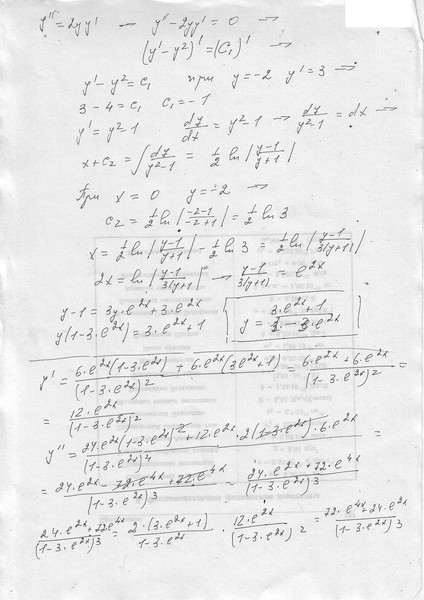 y'' = 2yy' — y'' - 2yy' = 0 ⇒
(y' - y²)' = (C₁)' ⇒
y' - y² = C₁ при y = -2 y' = 3 ⇒
3 - 4 = C₁ C₁ = -1
y' = y² - 1 dy/dx = y² - 1 → dy/(y² - 1) = dx ⇒
x + C₂ = ∫ dy/(y² - 1) = 1/2 ln |(y - 1)/(y + 1)|
При x = 0 y = -2 ⇒
C₂ = 1/2 ln |(-2 - 1)/(-2 + 1)| = 1/2 ln 3
x = 1/2 ln |(y - 1)/(y + 1)| - 1/2 ln 3 = 1/2 ln |(y - 1)/(3(y + 1))|
2x = ln |(y - 1)/(3(y + 1))| → (y - 1)/(3(y + 1)) = e^(2x)
y - 1 = 3y·e^(2x) + 3·e^(2x)
y(1 - 3·e^(2x)) = 3·e^(2x) + 1 y = (3·e^(2x) + 1)/(1 - 3·e^(2x))
y' = (6·e^(2x)(1 - 3·e^(2x)) + 6·e^(2x)(3e^(2x) + 1))/(1 - 3·e^(2x))² = (6·e^(2x) + 6·e^(2x))/(1 - 3·e^(2x))² =
= 12·e^(2x)/(1 - 3·e^(2x))²
y'' = (24·e^(2x)(1 - 3·e^(2x))² + 12·e^(2x)·2(1 - 3·e^(2x))·6·e^(2x))/(1 - 3·e^(2x))⁴ =
= (24·e^(2x) - 72·e^(4x) + 144·e^(4x))/(1 - 3·e^(2x))³ = (24·e^(2x) + 72·e^(4x))/(1 - 3·e^(2x))³
(24·e^(2x) + 72·e^(4x))/(1 - 3·e^(2x))³ = 2·(3·e^(2x) + 1)/(1 - 3·e^(2x)) · 12·e^(2x)/(1 - 3·e^(2x))² = (72·e^(4x) + 24·e^(2x))/(1 - 3·e^(2x))³